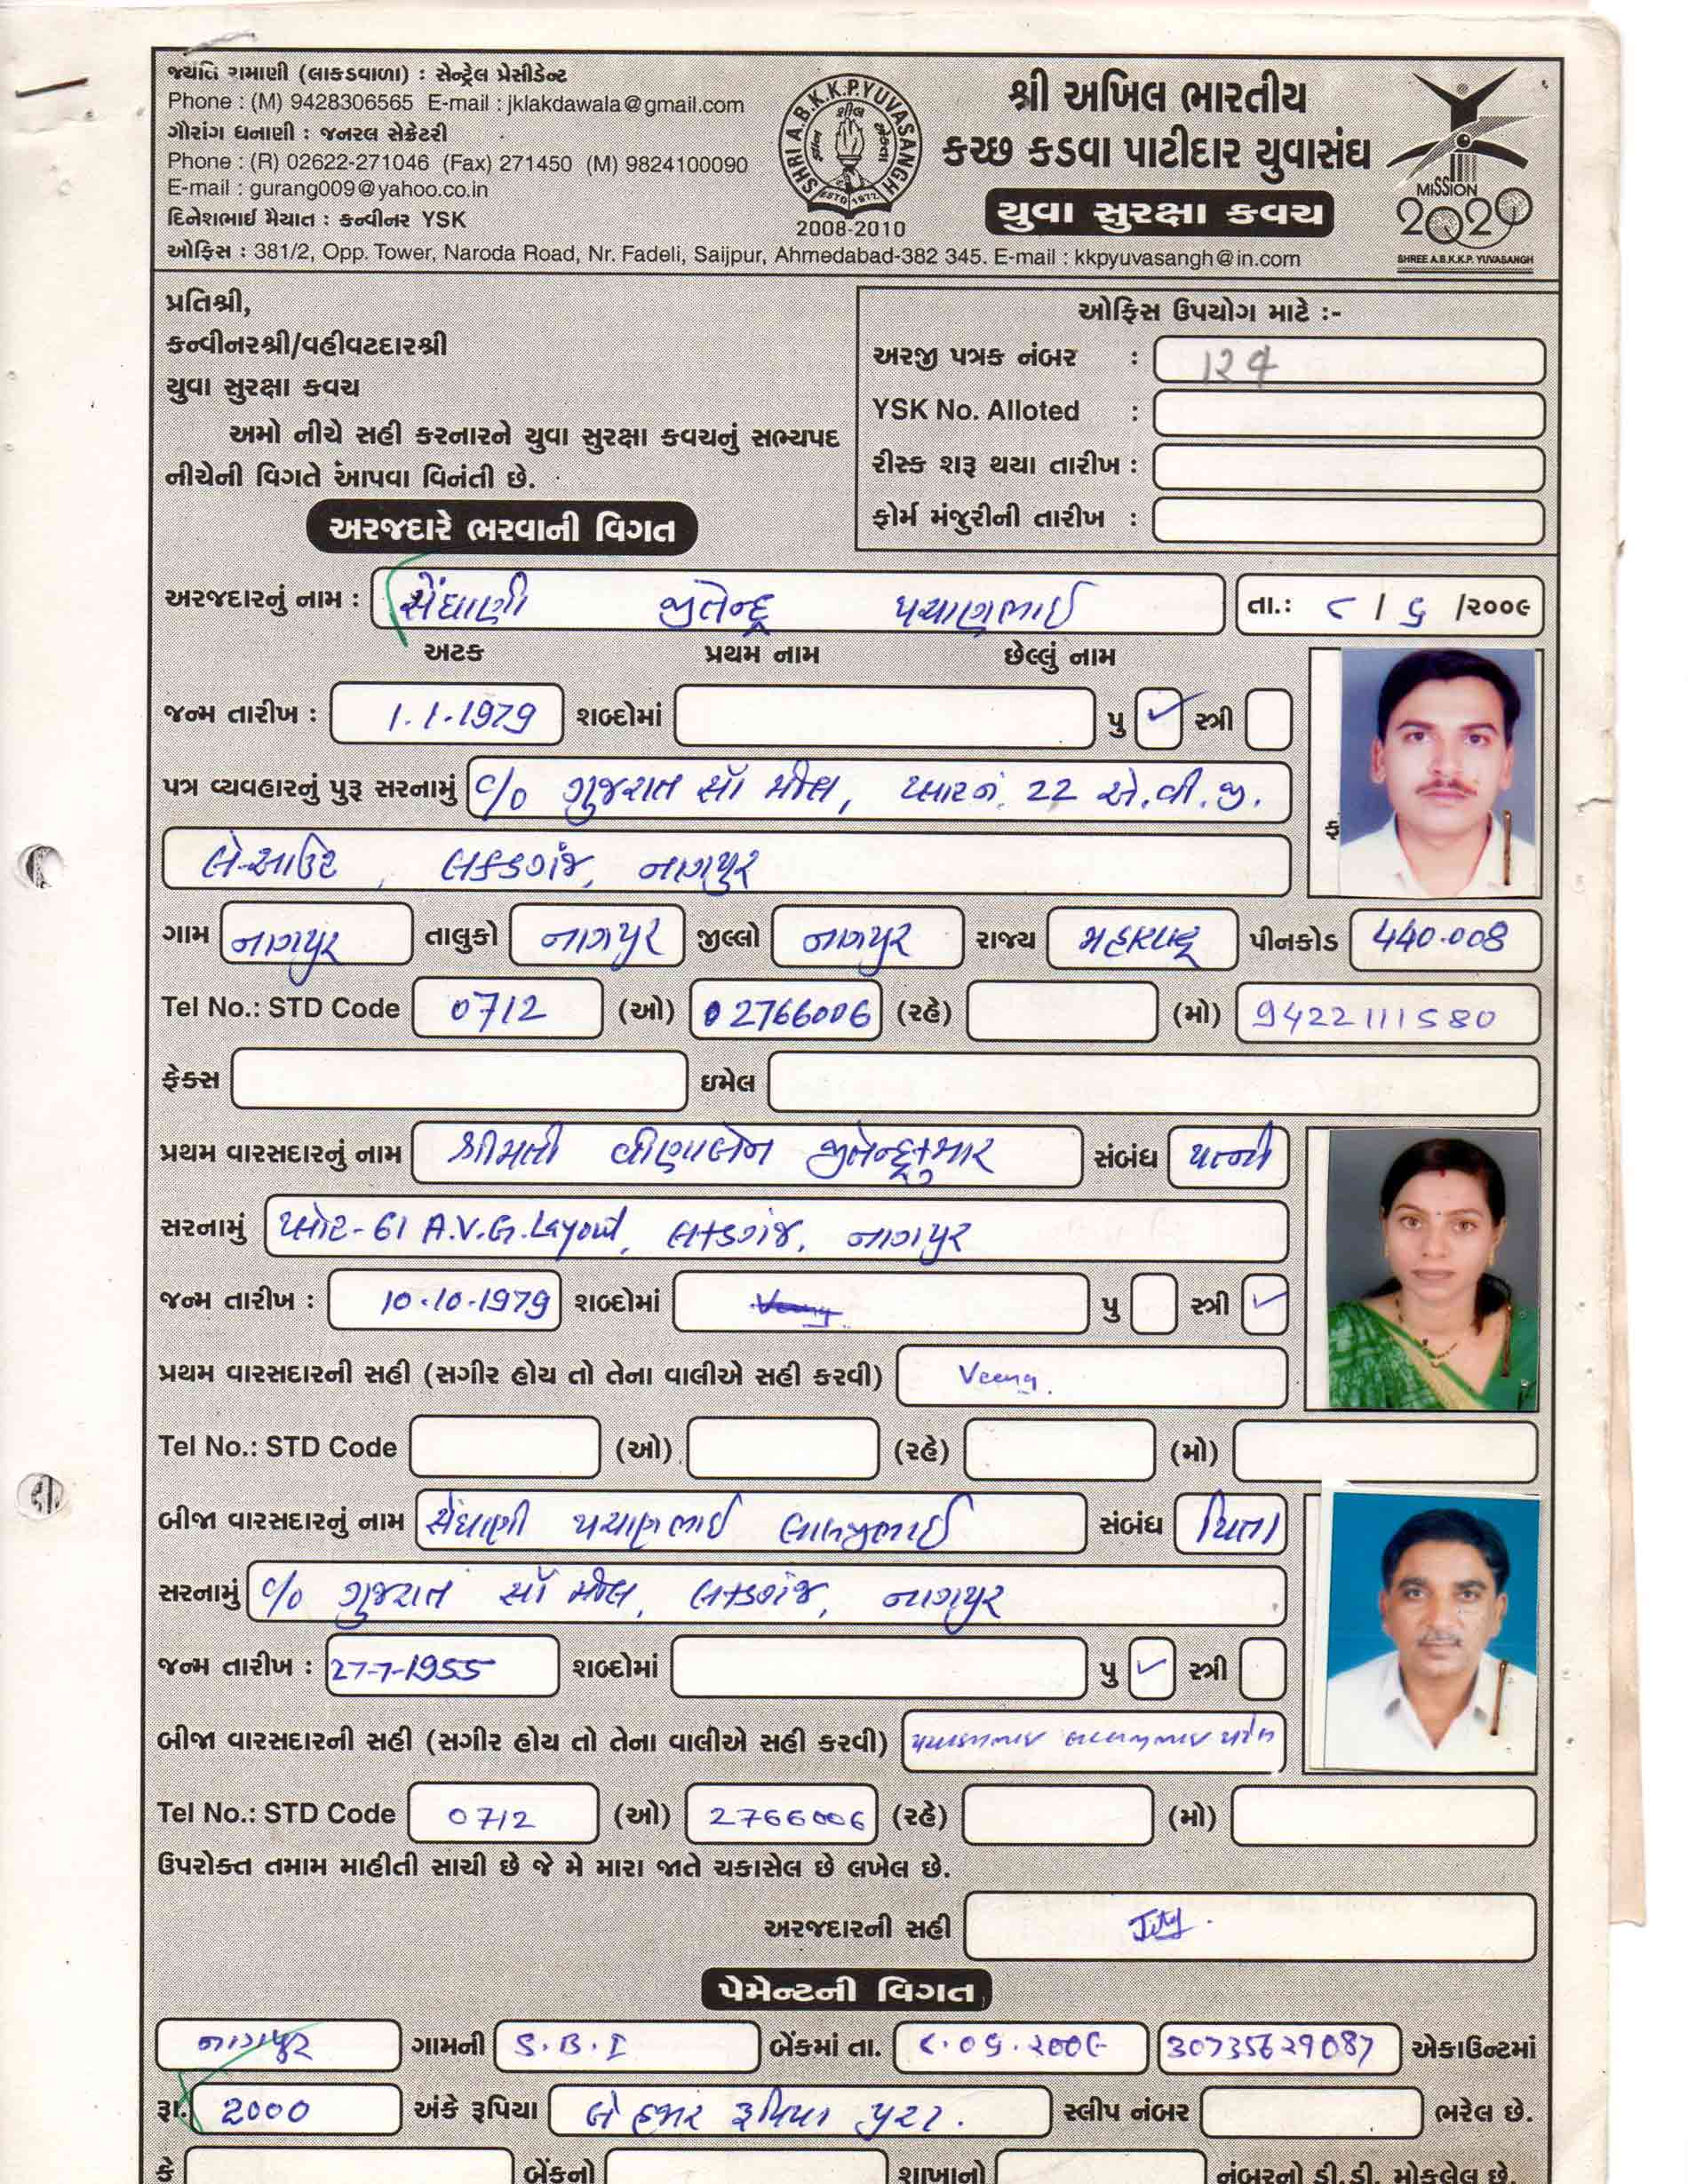 જયંતિ રામાણી (લાકડવાળા) : સેન્ટ્રેલ પ્રેસીડેન્ટ
Phone : (M) 9428306565 E-mail : jklakdawala@gmail.com
ગૌરાંગ ધનાણી : જનરલ સેક્રેટરી
Phone : (R) 02622-271046 (Fax) 271450 (M) 9824100090
E-mail : gurang009@yahoo.co.in
દિનેશભાઈ મૈયાત : કન્વીનર YSK
SHRI A.B.K.K.P. YUVASANGH
ESTD 1972
2008-2010
શ્રી અખિલ ભારતીય
કચ્છ કડવા પાટીદાર યુવાસંઘ
યુવા સુરક્ષા કવચ
MISSION
2020
SHREE A.B.K.K.P. YUVASANGH
ઓફિસ : 381/2, Opp. Tower, Naroda Road, Nr. Fadeli, Saijpur, Ahmedabad-382 345. E-mail : kkpyuvasangh@in.com
પ્રતિશ્રી,
કન્વીનરશ્રી/વહીવટદારશ્રી
યુવા સુરક્ષા કવચ
અમો નીચે સહી કરનારને યુવા સુરક્ષા કવચનું સભ્યપદ
નીચેની વિગતે આપવા વિનંતી છે.
ઓફિસ ઉપયોગ માટે :-
અરજી પત્રક નંબર : 124
YSK No. Alloted :
રીસ્ક શરૂ થયા તારીખ :
ફોર્મ મંજુરીની તારીખ :
અરજદારે ભરવાની વિગત
અરજદારનું નામ : સેંઘાણી જીતેન્દ્ર પચાણભાઈ તા.: ૮ / ૬ /૨૦૦૯
અટક પ્રથમ નામ છેલ્લું નામ
જન્મ તારીખ : 1.1.1979 શબ્દોમાં પુ ✓ સ્ત્રી
પત્ર વ્યવહારનું પુરૂ સરનામું C/o ગુજરાત સૉ મીલ, પ્લાટ નં. 22 એ.વી.જી.
લે-આઉટ, લકડગંજ, નાગપુર
ગામ નાગપુર તાલુકો નાગપુર જીલ્લો નાગપુર રાજ્ય મહારાષ્ટ્ર પીનકોડ 440.008
Tel No.: STD Code 0712 (ઓ) 02766006 (રહે) (મો) 9422111580
ફેક્સ ઇમેલ
પ્રથમ વારસદારનું નામ શ્રીમતી વીણાબેન જીતેન્દ્રકુમાર સંબંધ પત્ની
સરનામું પ્લોટ-61 A.V.G. Layout, લકડગંજ, નાગપુર
જન્મ તારીખ : 10.10.1979 શબ્દોમાં પુ સ્ત્રી ✓
પ્રથમ વારસદારની સહી (સગીર હોય તો તેના વાલીએ સહી કરવી) Veena.
Tel No.: STD Code (ઓ) (રહે) (મો)
બીજા વારસદારનું નામ સેંઘાણી પચાણભાઈ લાલજીભાઈ સંબંધ પિતા
સરનામું C/o ગુજરાત સૉ મીલ, લકડગંજ, નાગપુર
જન્મ તારીખ : 27-7-1955 શબ્દોમાં પુ ✓ સ્ત્રી
બીજા વારસદારની સહી (સગીર હોય તો તેના વાલીએ સહી કરવી) પચાણભાઈ લાલજીભાઈ પટેલ
Tel No.: STD Code 0712 (ઓ) 2766006 (રહે) (મો)
ઉપરોક્ત તમામ માહીતી સાચી છે જે મે મારા જાતે ચકાસેલ છે લખેલ છે.
અરજદારની સહી
પેમેન્ટની વિગત
નાગપુર ગામની S.B.I બેંકમાં તા. ૮.૦૬.૨૦૦૯ 30735629087 એકાઉન્ટમાં
રૂા. 2000 અંકે રૂપિયા બે હજાર રૂપિયા પુરા. સ્લીપ નંબર ભરેલ છે.
કે બેંકનો શાખાનો નંબરનો ડી.ડી. મોકલેલ છે.